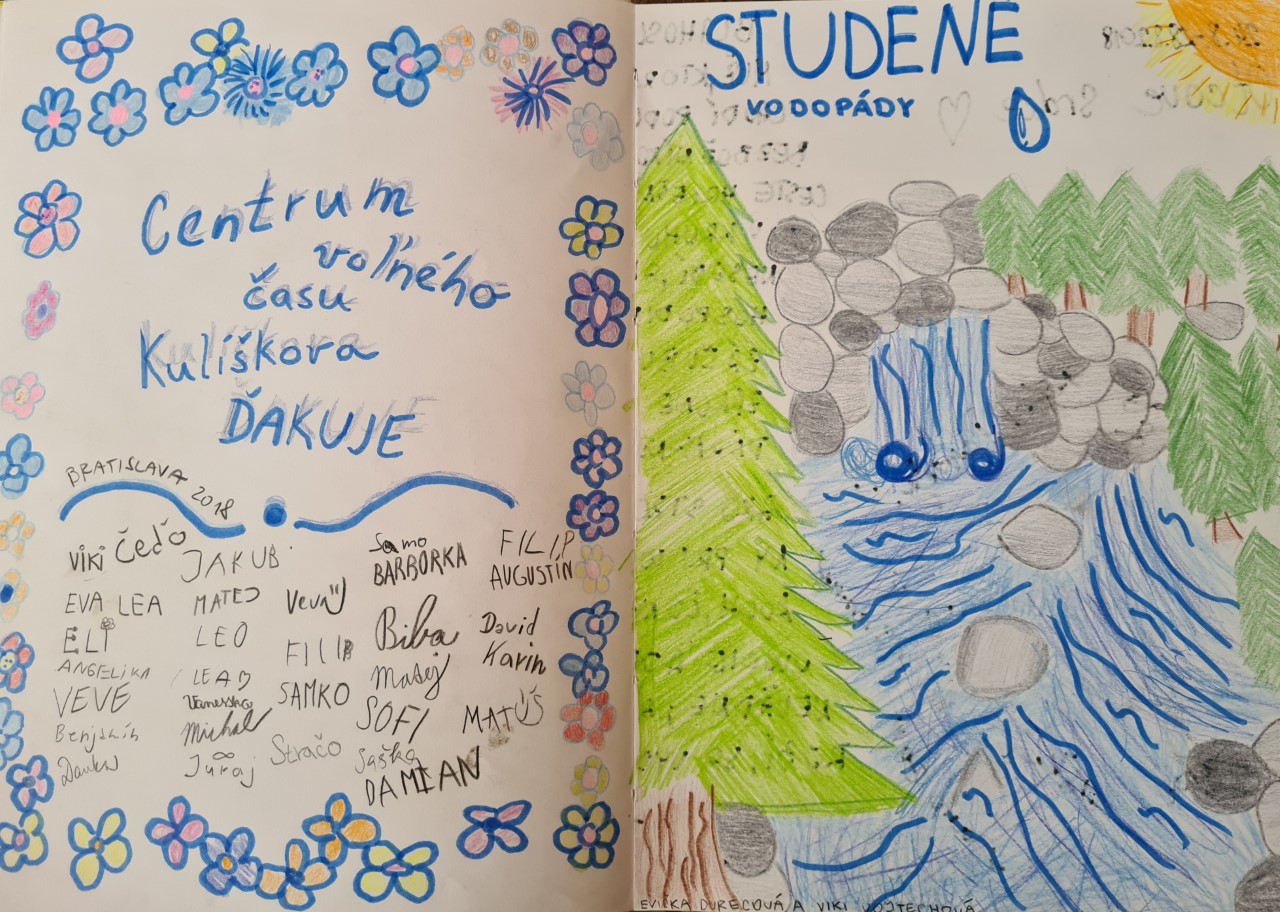 Centrum
voľného
času
Kulíškova
ĎAKUJE
BRATISLAVA 2018
VIKI
Čedo
JAKUB
Samo
BARBORKA
FILIP
AUGUSTÍN
EVA
LEA
MATEJ
Veva
ELI
LEO
FILIP
Biba
David
Karin
ANGELIKA
LEA
VEVE
Vanesska
SAMKO
Matej
Michal
SOFI
MATÚŠ
Juraj
Stračo
Saška
DAMIAN
STUDENÉ
VODOPÁDY
EVIČKA DURECOVÁ A VIKI VOJTECHOVÁ